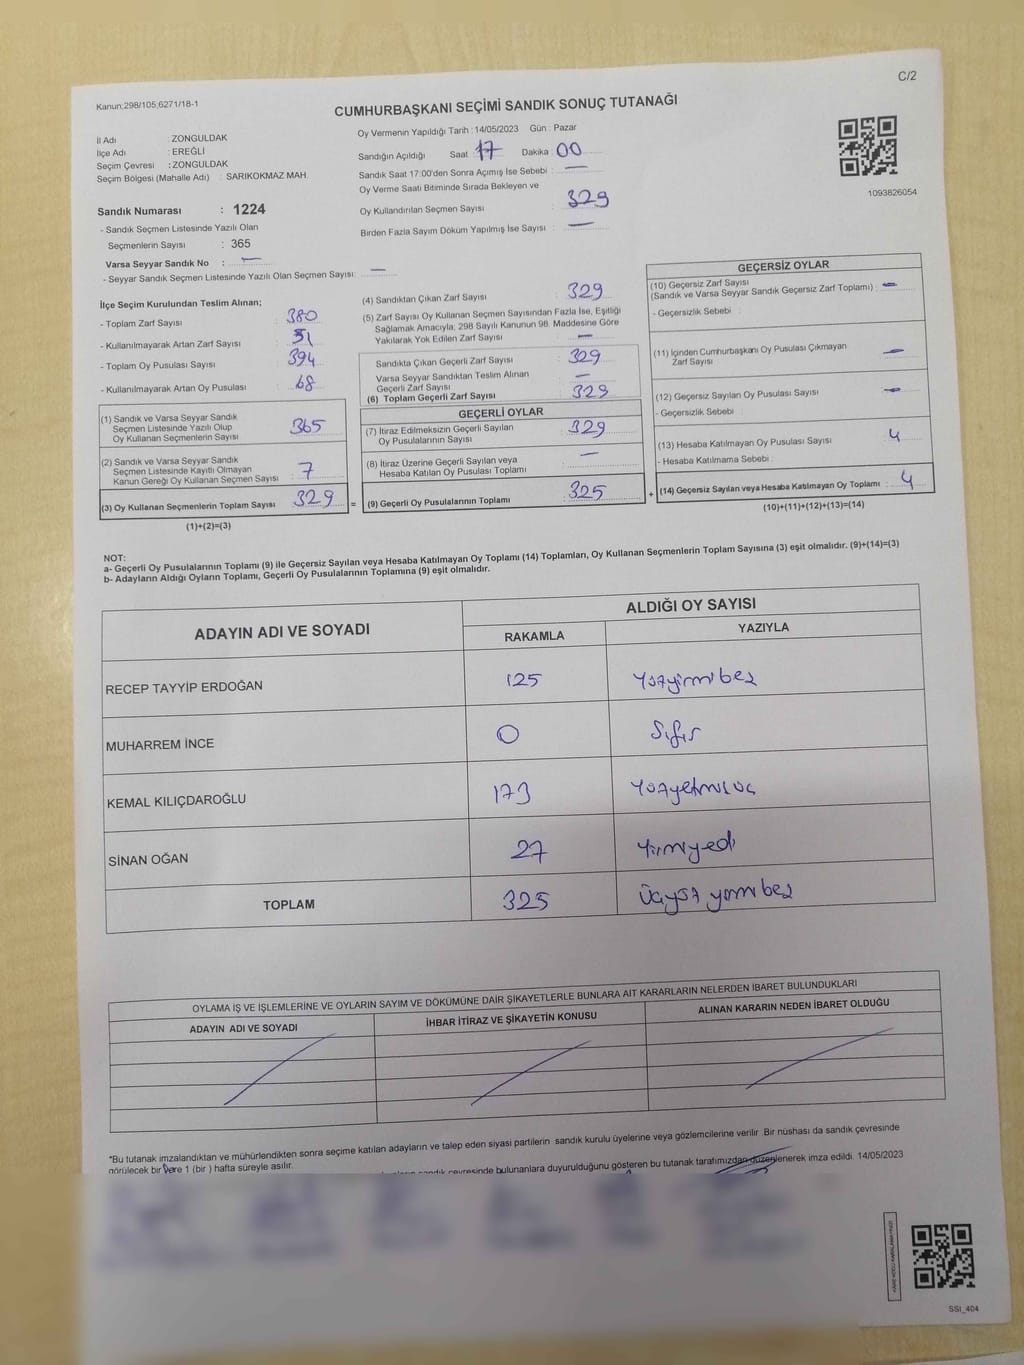 C/2
Kanun:298/105;6271/18-1
CUMHURBAŞKANI SEÇİMİ SANDIK SONUÇ TUTANAĞI
İl Adı : ZONGULDAK
İlçe Adı : EREĞLİ
Seçim Çevresi : ZONGULDAK
Seçim Bölgesi (Mahalle Adı) : SARIKOKMAZ MAH.
Oy Vermenin Yapıldığı Tarih : 14/05/2023 Gün : Pazar
Sandığın Açıldığı Saat : 17 Dakika : 00
Sandık Saat 17:00'den Sonra Açımış İse Sebebi : —
Oy Verme Saati Bitiminde Sırada Bekleyen ve
Oy Kullandırılan Seçmen Sayısı : 329
Birden Fazla Sayım Döküm Yapılmış İse Sayısı : —
1093826054
Sandık Numarası : 1224
- Sandık Seçmen Listesinde Yazılı Olan
Seçmenlerin Sayısı : 365
Varsa Seyyar Sandık No : —
- Seyyar Sandık Seçmen Listesinde Yazılı Olan Seçmen Sayısı: —
İlçe Seçim Kurulundan Teslim Alınan;
- Toplam Zarf Sayısı : 380
- Kullanılmayarak Artan Zarf Sayısı : 51
- Toplam Oy Pusulası Sayısı : 394
- Kullanılmayarak Artan Oy Pusulası : 68
(1) Sandık ve Varsa Seyyar Sandık
Seçmen Listesinde Yazılı Olup
Oy Kullanan Seçmenlerin Sayısı : 365
(2) Sandık ve Varsa Seyyar Sandık
Seçmen Listesinde Kayıtlı Olmayan
Kanun Gereği Oy Kullanan Seçmen Sayısı : 7
(3) Oy Kullanan Seçmenlerin Toplam Sayısı : 329 =
(1)+(2)=(3)
(4) Sandıktan Çıkan Zarf Sayısı : 329
(5) Zarf Sayısı Oy Kullanan Seçmen Sayısından Fazla İse, Eşitliği
Sağlamak Amacıyla; 298 Sayılı Kanunun 98. Maddesine Göre
Yakılarak Yok Edilen Zarf Sayısı : —
Sandıkta Çıkan Geçerli Zarf Sayısı : 329
Varsa Seyyar Sandıktan Teslim Alınan
Geçerli Zarf Sayısı : —
(6) Toplam Geçerli Zarf Sayısı : 329
GEÇERLİ OYLAR
(7) İtiraz Edilmeksizin Geçerli Sayılan
Oy Pusulalarının Sayısı : 329
(8) İtiraz Üzerine Geçerli Sayılan veya
Hesaba Katılan Oy Pusulası Toplamı : —
(9) Geçerli Oy Pusulalarının Toplamı : 325 +
GEÇERSİZ OYLAR
(10) Geçersiz Zarf Sayısı
(Sandık ve Varsa Seyyar Sandık Geçersiz Zarf Toplamı) : —
- Geçersizlik Sebebi :
(11) İçinden Cumhurbaşkanı Oy Pusulası Çıkmayan
Zarf Sayısı : —
(12) Geçersiz Sayılan Oy Pusulası Sayısı : —
- Geçersizlik Sebebi :
(13) Hesaba Katılmayan Oy Pusulası Sayısı : 4
- Hesaba Katılmama Sebebi :
(14) Geçersiz Sayılan veya Hesaba Katılmayan Oy Toplamı : 4
(10)+(11)+(12)+(13)=(14)
NOT:
a- Geçerli Oy Pusulalarının Toplamı (9) ile Geçersiz Sayılan veya Hesaba Katılmayan Oy Toplamı (14) Toplamları, Oy Kullanan Seçmenlerin Toplam Sayısına (3) eşit olmalıdır. (9)+(14)=(3)
b- Adayların Aldığı Oyların Toplamı, Geçerli Oy Pusulalarının Toplamına (9) eşit olmalıdır.
ADAYIN ADI VE SOYADI
ALDIĞI OY SAYISI
RAKAMLA YAZIYLA
RECEP TAYYİP ERDOĞAN 125 Yüzyirmibeş
MUHARREM İNCE 0 Sıfır
KEMAL KILIÇDAROĞLU 173 Yüzyetmişüç
SİNAN OĞAN 27 Yirmiyedi
TOPLAM 325 Üçyüz yirmibeş
OYLAMA İŞ VE İŞLEMLERİNE VE OYLARIN SAYIM VE DÖKÜMÜNE DAİR ŞİKAYETLERLE BUNLARA AİT KARARLARIN NELERDEN İBARET BULUNDUKLARI
ADAYIN ADI VE SOYADI İHBAR İTİRAZ VE ŞİKAYETİN KONUSU ALINAN KARARIN NEDEN İBARET OLDUĞU
*Bu tutanak imzalandıktan ve mühürlendikten sonra seçime katılan adayların ve talep eden siyasi partilerin sandık kurulu üyelerine veya gözlemcilerine verilir. Bir nüshası da sandık çevresinde
görülecek bir yere 1 (bir ) hafta süreyle asılır.
sandık çevresinde bulunanlara duyurulduğunu gösteren bu tutanak tarafımızdan düzenlenerek imza edildi. 14/05/2023
SSI_404